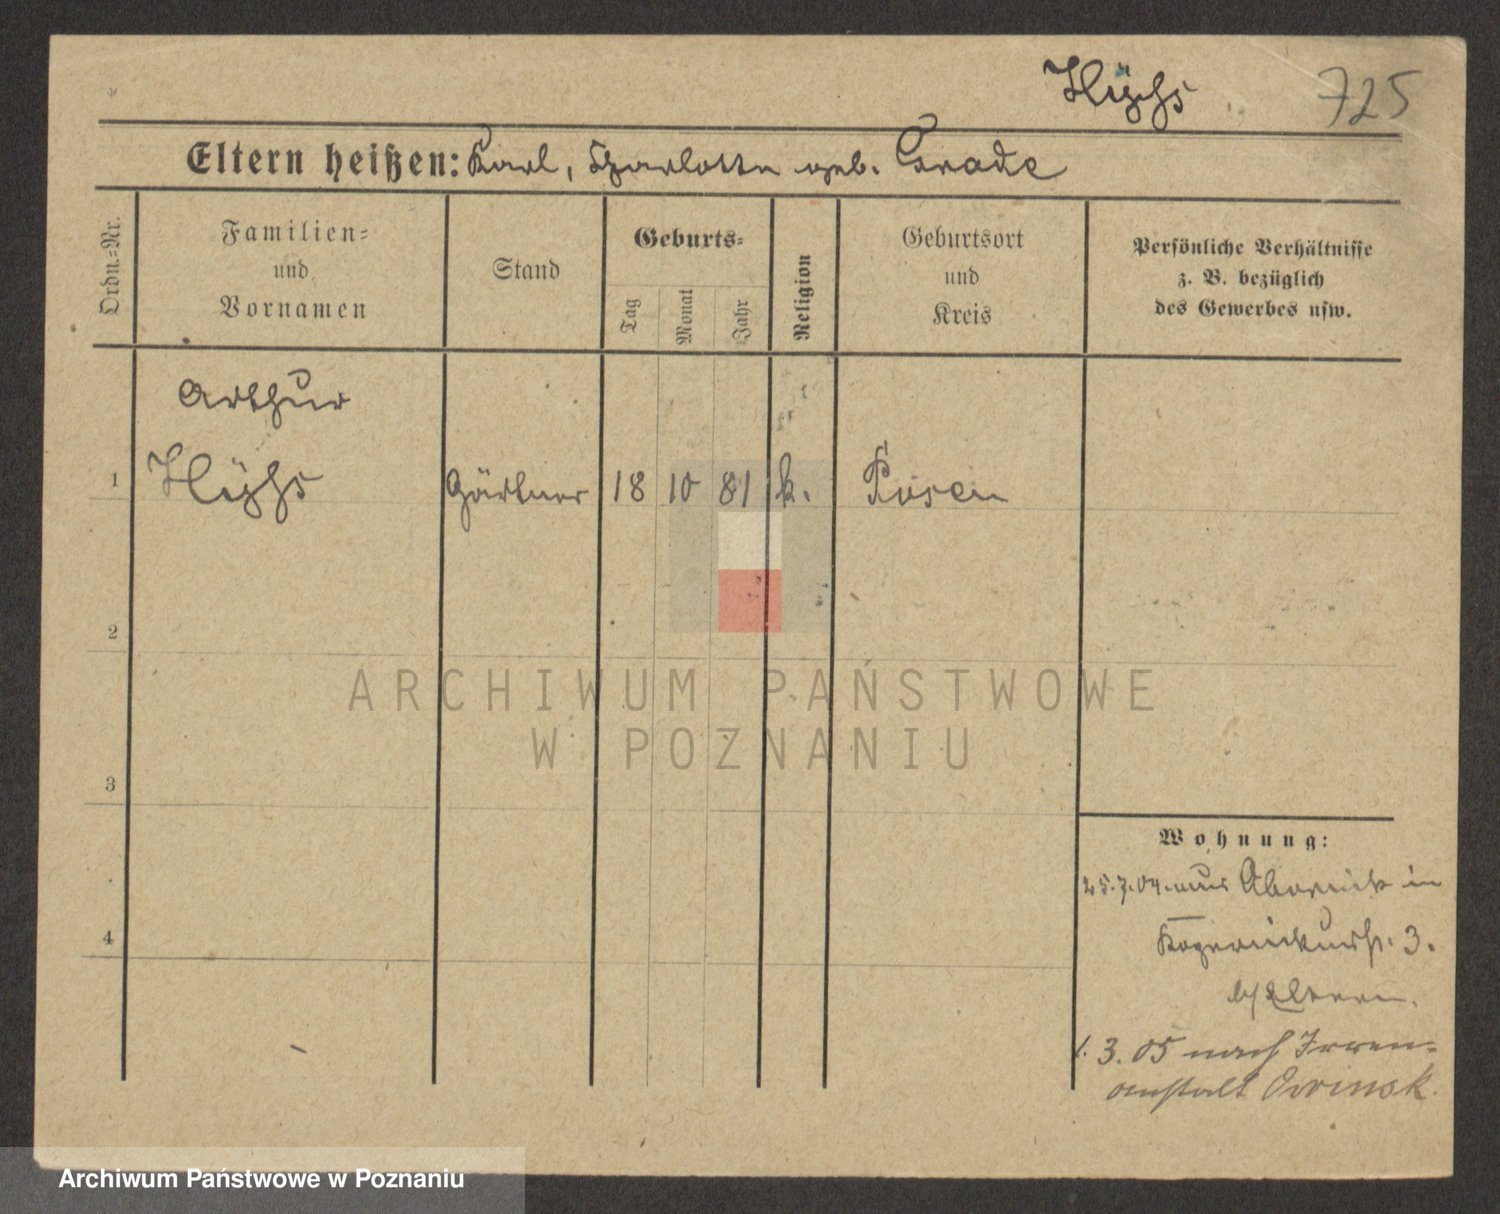 725
Eltern heißen: Karl, Charlotte geb. Grade
Ordn.-Nr.
Familien-
und
Vornamen
Stand
Geburts-
Tag
Monat
Jahr
Religion
Geburtsort
und
Kreis
Persönliche Verhältnisse
z. B. bezüglich
des Gewerbes usw.
Arthur
1 Gärtner 18 10 81 k. Posen
2
3
4
Wohnung:
25.7.04. aus in
3.
b/ Eltern.
1. 3. 05 nach Irren-
anstalt Owinsk.
ARCHIWUM PAŃSTWOWE
W POZNANIU
Archiwum Państwowe w Poznaniu